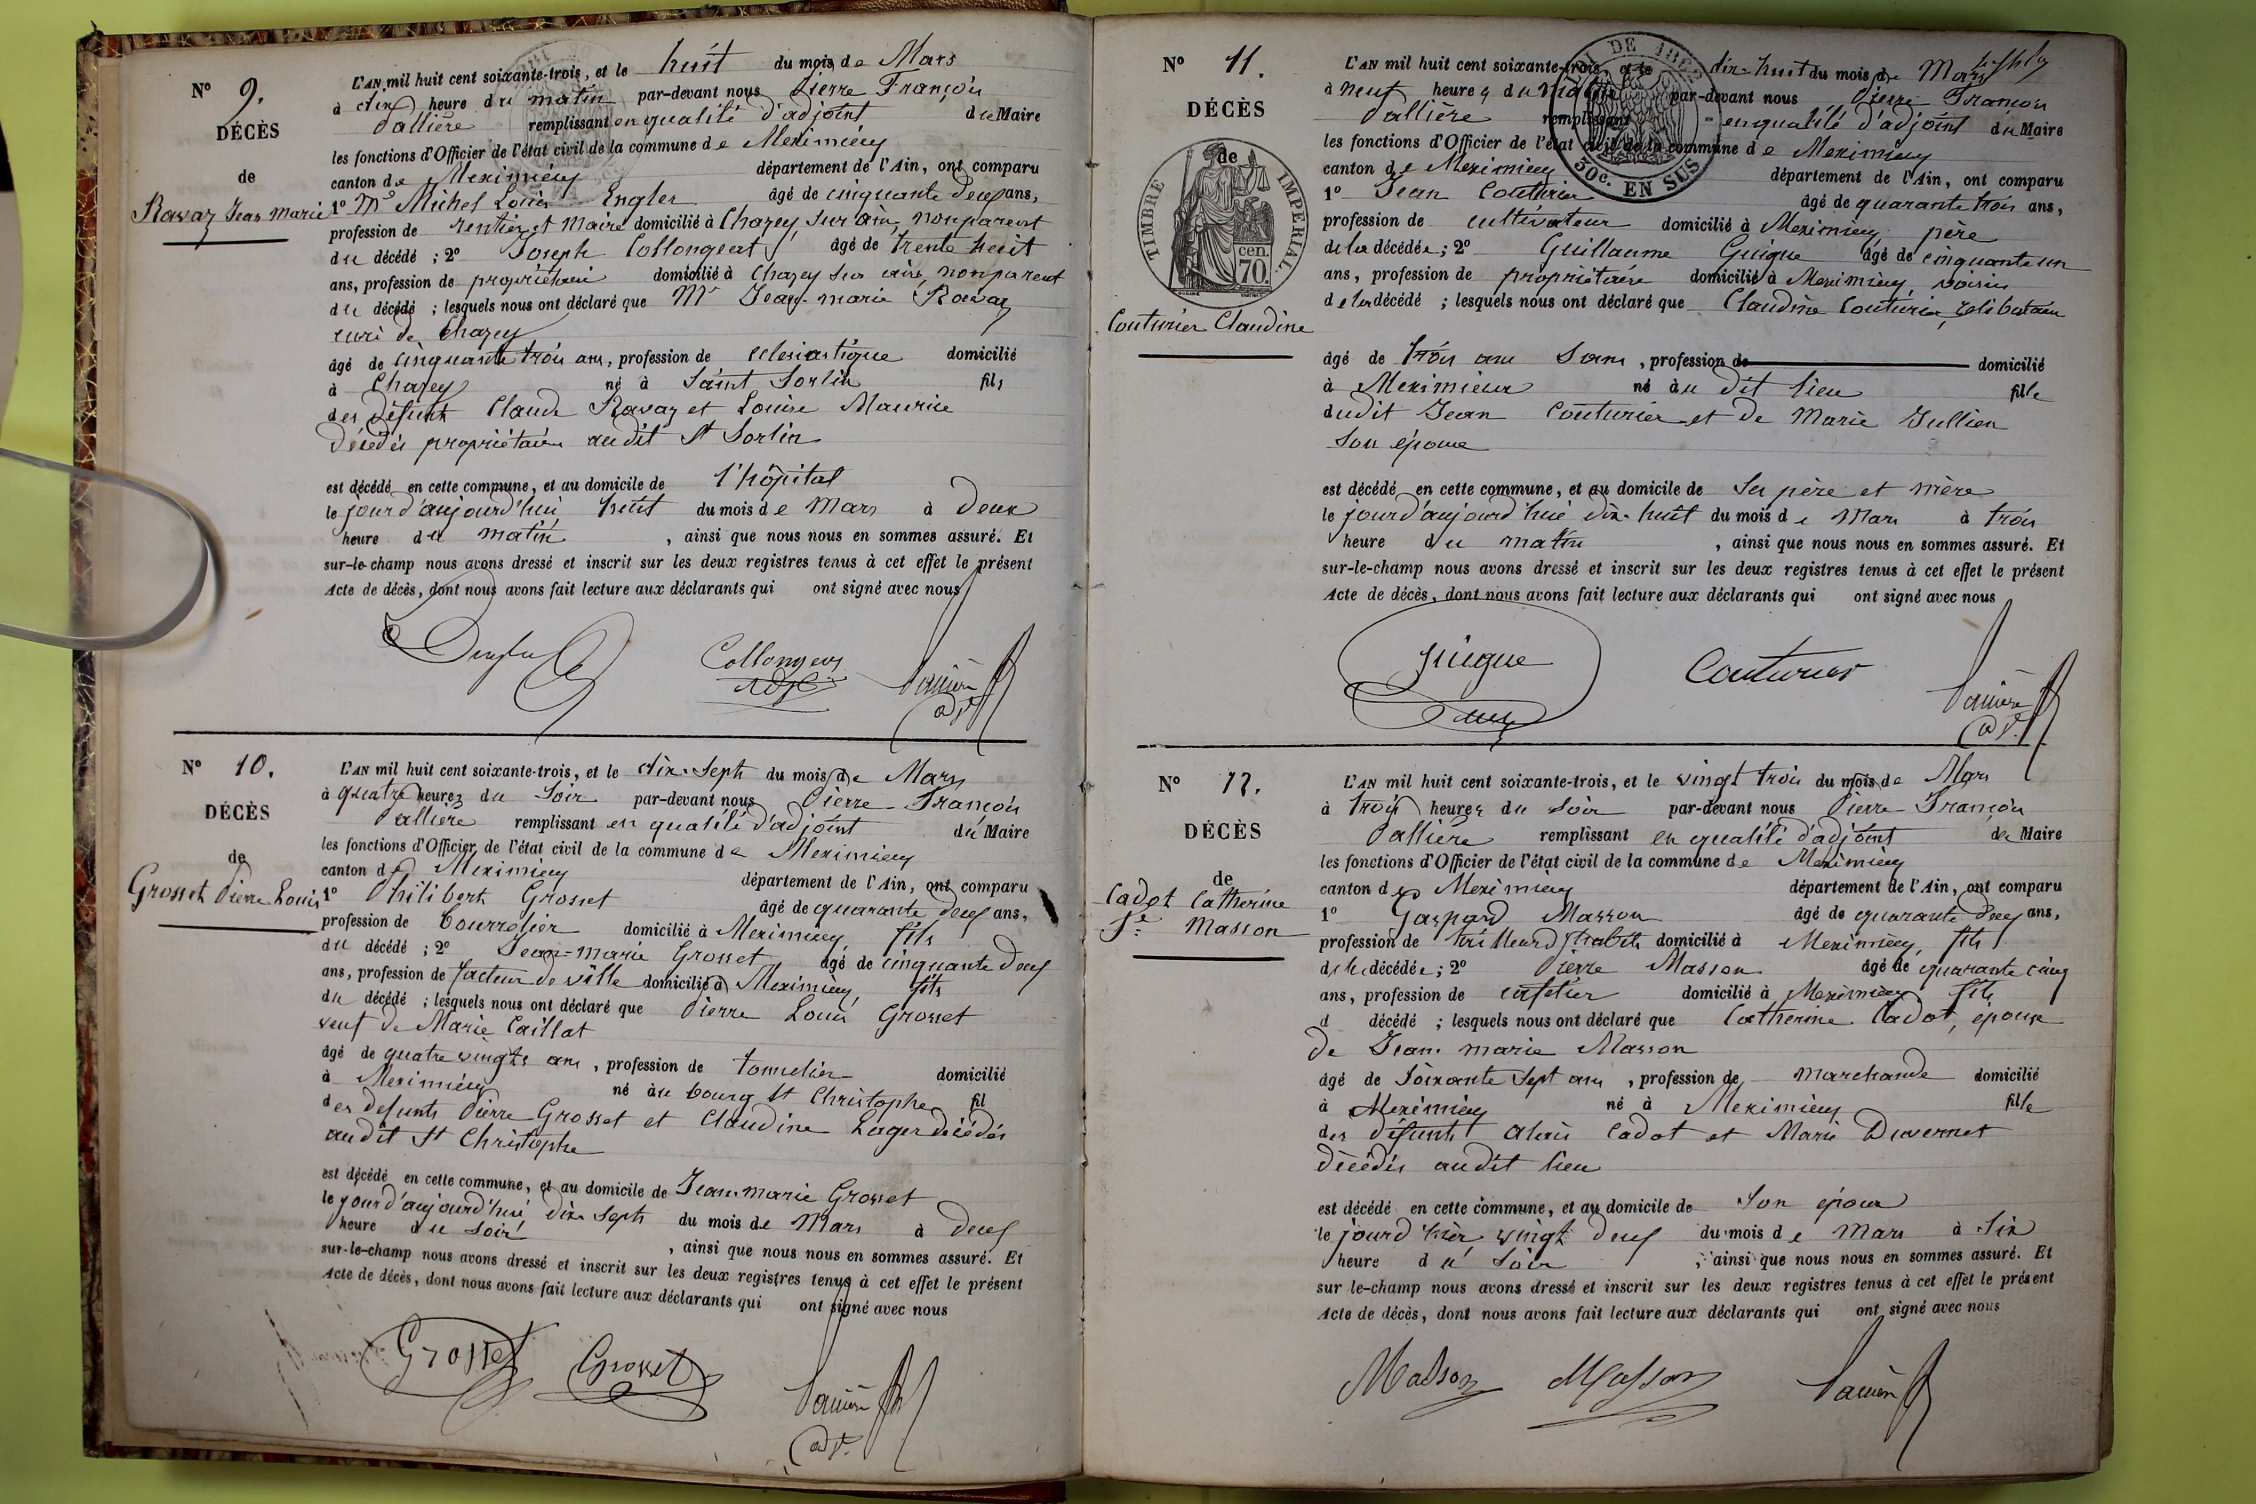 N° 9.
DÉCÈS
de
Ravaz Jean Marie
L'AN mil huit cent soixante-trois, et le huit du mois de Mars
à dix heure du matin par-devant nous Pierre François
Pallière remplissant en qualité d'adjoint du Maire
les fonctions d'Officier de l'état civil de la commune de Meximieux
canton de Meximieux département de l'Ain, ont comparu
1° Mr Michel Louis Engler âgé de cinquante deux ans,
profession de rentier et Maire domicilié à Chazey sur ain, non parent
du décédé ; 2° Joseph Collongeat âgé de trente huit
ans, profession de propriétaire domicilié à Chazey sur ain, non parent
du décédé ; lesquels nous ont déclaré que Mr Jean-marie Ravaz
curé de Chazey
âgé de cinquante trois ans, profession de eclesiastique domicilié
à Chazey né à Saint Sorlin fils
des défunts Claude Ravaz et Louise Maurice
décédés propriétaires audit St Sorlin
est décédé en cette commune, et au domicile de l'hôpital
le jour d'aujourd'hui huit du mois de Mars à deux
heure du matin , ainsi que nous nous en sommes assuré. Et
sur-le-champ nous avons dressé et inscrit sur les deux registres tenus à cet effet le présent
Acte de décès, dont nous avons fait lecture aux déclarants qui ont signé avec nous
Collongeat
Pallière
adt
N° 10.
DÉCÈS
de
Grosset Pierre Louis
L'AN mil huit cent soixante-trois, et le dix-sept du mois de Mars
à quatre heures du soir par-devant nous Pierre François
Pallière remplissant en qualité d'adjoint du Maire
les fonctions d'Officier de l'état civil de la commune de Meximieux
canton de Meximieux département de l'Ain, ont comparu
1° Philibert Grosset âgé de quarante deux ans,
profession de bourrelier domicilié à Meximieux, fils
du décédé ; 2° Jean-marie Grosset âgé de cinquante deux
ans, profession de facteur de ville domicilié à Meximieux, fils
du décédé ; lesquels nous ont déclaré que Pierre Louis Grosset
veuf de Marie Caillat
âgé de quatre vingts ans , profession de tonnelier domicilié
à Meximieux né à u bourg St Christophe fil
des defunts Pierre Grosset et Claudine Lager décédés
audit St Christophe
est décédé en cette commune, et au domicile de Jean-marie Grosset
le jour d'aujourd'hui dix sept du mois de Mars à deux
heure du soir , ainsi que nous nous en sommes assuré. Et
sur-le-champ nous avons dressé et inscrit sur les deux registres tenus à cet effet le présent
Acte de décès, dont nous avons fait lecture aux déclarants qui ont signé avec nous
Grosset Grosset Pallière
adt.
N° 11.
DÉCÈS
de
TIMBRE IMPERIAL.
cen. 70.
Couturier Claudine
LOI DE 1862
50c. EN SUS
L'AN mil huit cent soixante-trois, et le dix-huit du mois de Mars
à neuf heures du matin par-devant nous Pierre François
Pallière remplissant en qualité d'adjoint du Maire
les fonctions d'Officier de l'état civil de la commune de Meximieux
canton de Meximieux département de l'Ain, ont comparu
1° Jean Couturier âgé de quarante trois ans,
profession de cultivateur domicilié à Meximieux père
de la décédée ; 2° Guillaume Guigue âgé de cinquante un
ans, profession de propriétaire domicilié à Meximieux, voisin
de la décédé ; lesquels nous ont déclaré que Claudine Couturier, celibataire
âgé de trois ans Sans , profession de domicilié
à Meximieux né à u dit lieu fille
dudit Jean Couturier et de Marie Jullien
son épouse
est décédé en cette commune, et au domicile de Ses père et mère
le jour d'aujourd'hui dix-huit du mois de Mars à trois
heure du matin , ainsi que nous nous en sommes assuré. Et
sur-le-champ nous avons dressé et inscrit sur les deux registres tenus à cet effet le présent
Acte de décès, dont nous avons fait lecture aux déclarants qui ont signé avec nous
guigue Couturier Pallière
adt.
N° 12.
DÉCÈS
de
Cadot Catherine
fe Masson
L'AN mil huit cent soixante-trois, et le vingt trois du mois de Mars
à trois heures du soir par-devant nous Pierre François
Pallière remplissant en qualité d'adjoint du Maire
les fonctions d'Officier de l'état civil de la commune de Meximieux
canton de Meximieux département de l'Ain, ont comparu
1° Gaspard Masson âgé de quarante deux ans,
profession de tailleur d'habits domicilié à Meximieux, fils
de la décédée ; 2° Pierre Masson âgé de quarante cinq
ans, profession de cafetier domicilié à Meximieux fils
d décédé ; lesquels nous ont déclaré que Catherine Cadot, épouse
de Jean-marie Masson
âgé de soixante sept ans , profession de marchande domicilié
à Meximieux né à Meximieux fille
des défunts alexis Cadot et Marie Duvernet
décédés audit lieu
est décédé en cette commune, et au domicile de Son époux
le jour d'hier vingt deux du mois de Mars à six
heure du soir , ainsi que nous nous en sommes assuré. Et
sur le-champ nous avons dressé et inscrit sur les deux registres tenus à cet effet le présent
Acte de décès, dont nous avons fait lecture aux déclarants qui ont signé avec nous
Masson Masson Pallière